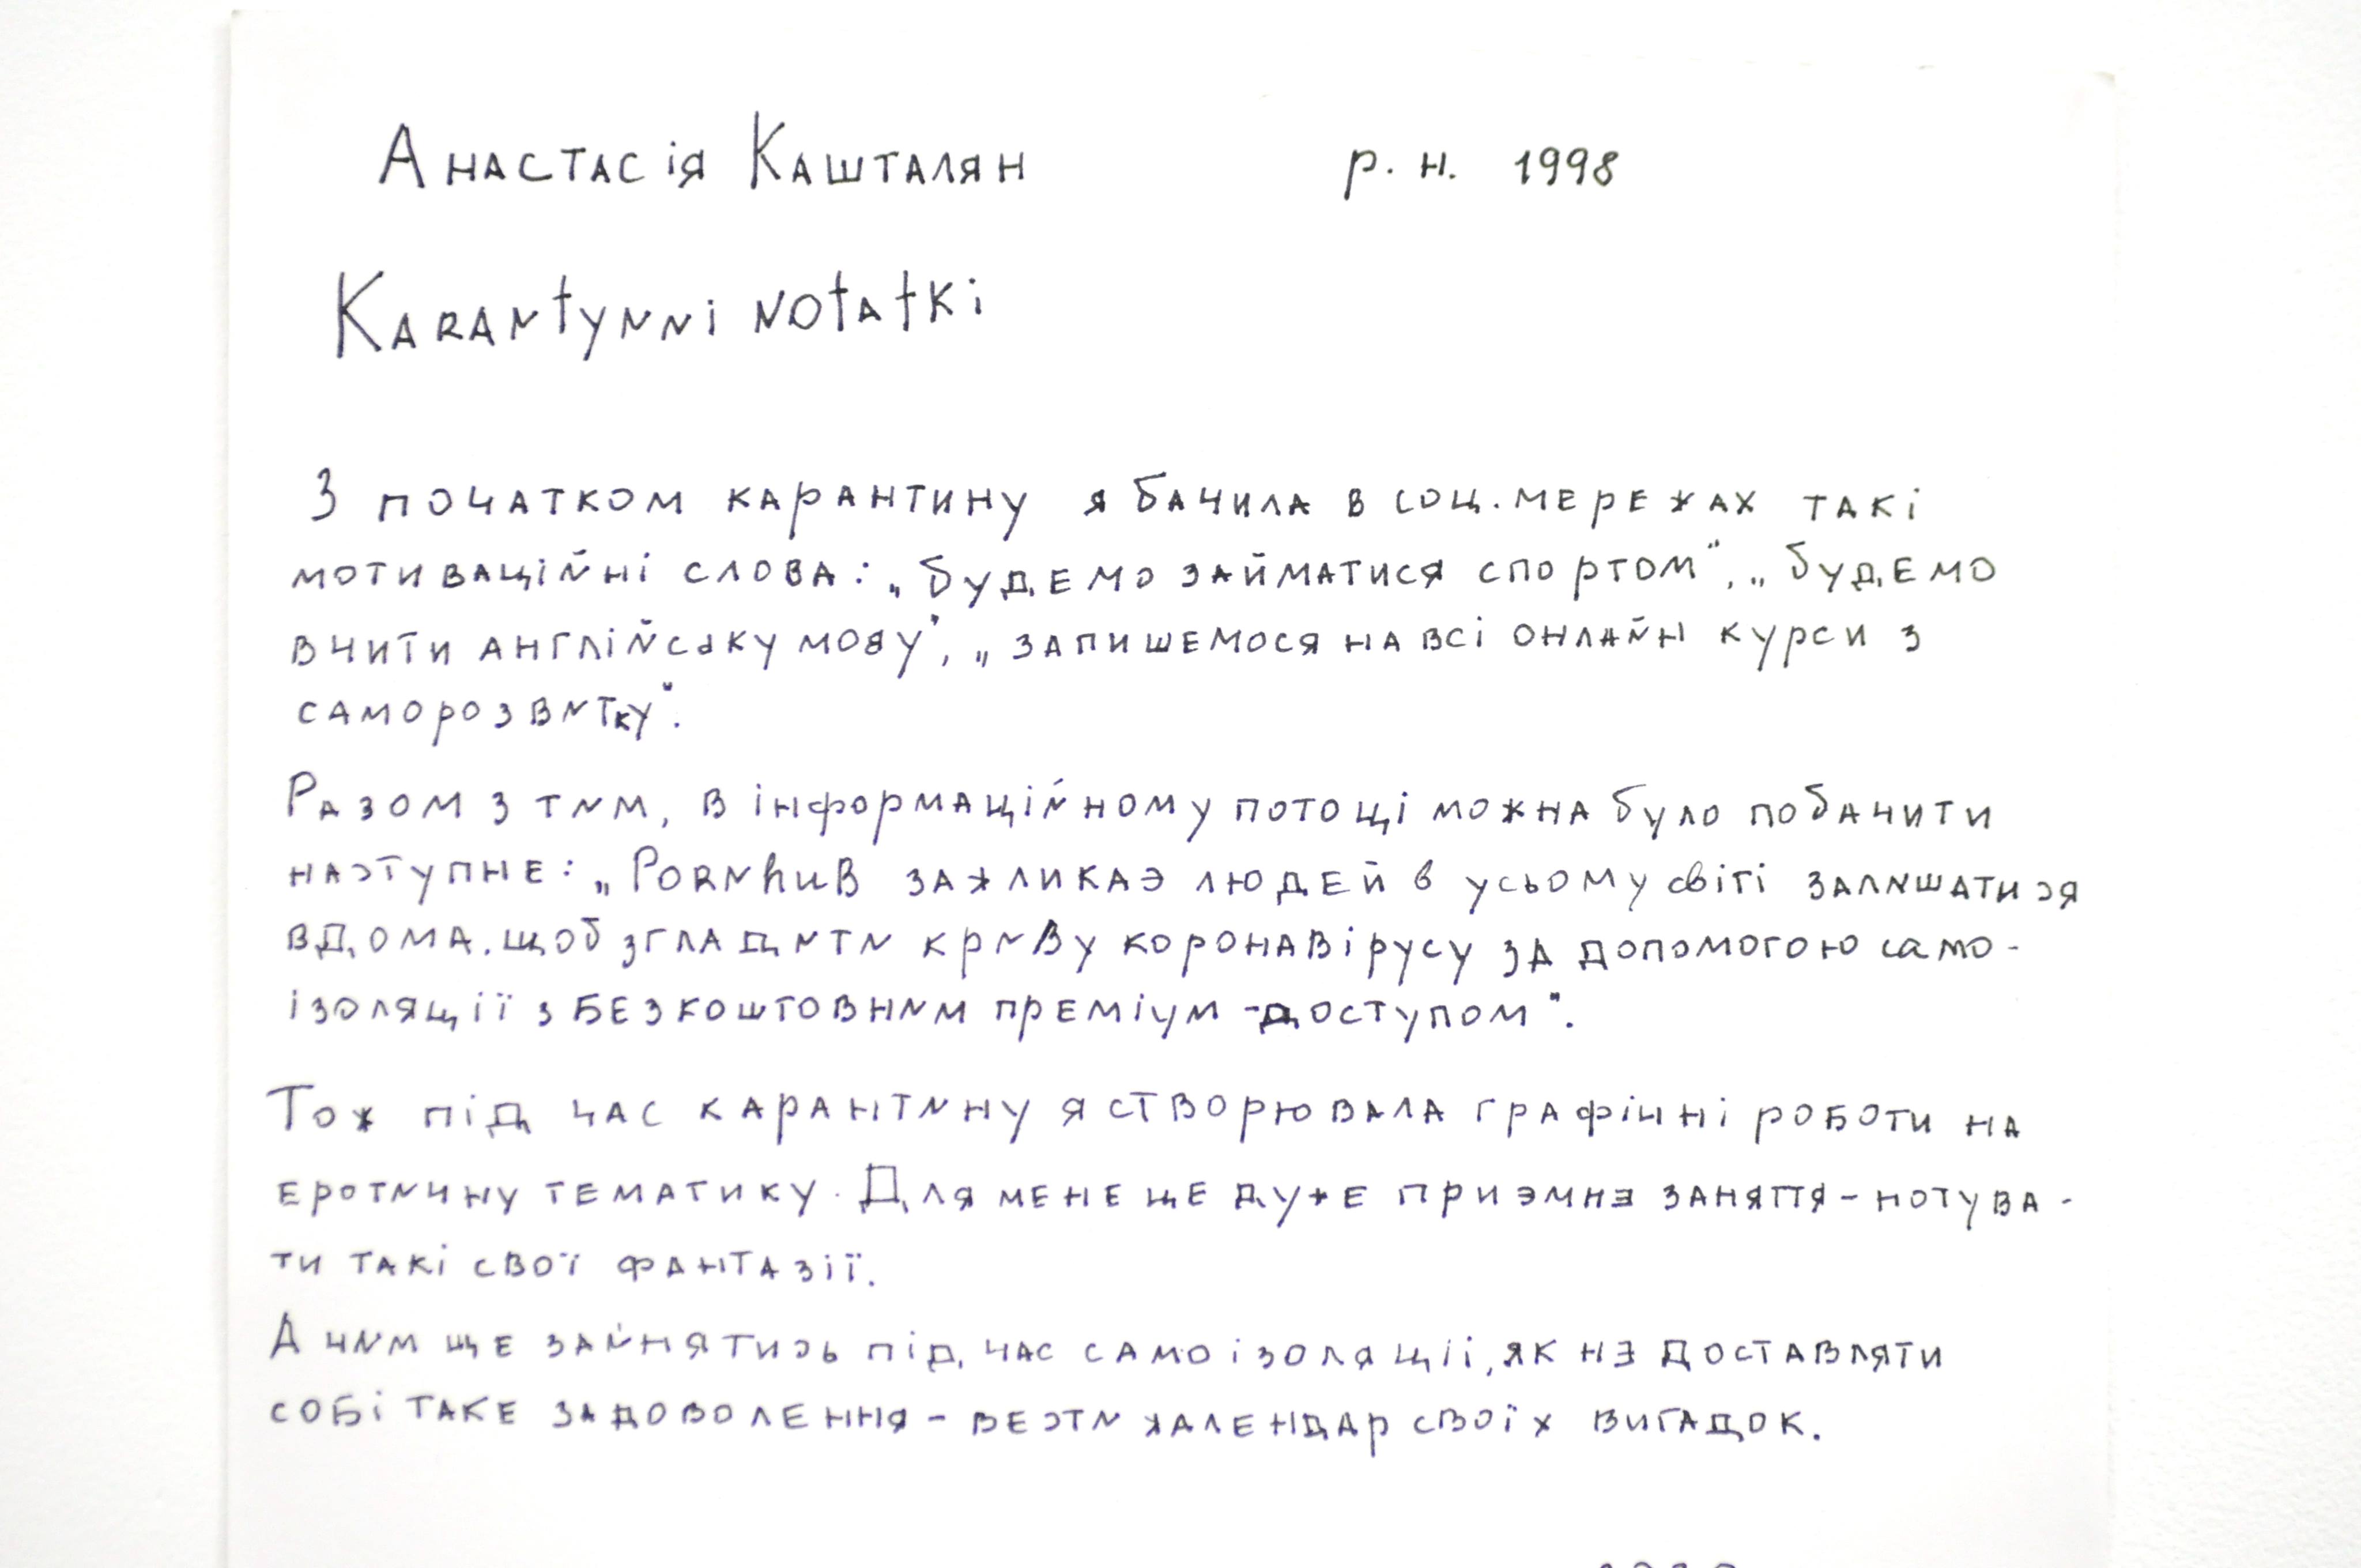 Анастасія Кашталян р. н. 1998
Karantynni notatki
З початком карантину я бачила в соц. мережах такі
мотиваційні слова: „будемо займатися спортом", „будемо
вчити англійську мову", „запишемося на всі онлайн курси з
саморозвитку".
Разом з тим, в інформаційному потоці можна було побачити
наступне: „Pornhub закликає людей в усьому світі залишатися
вдома, щоб згладити криву коронавірусу за допомогою само-
ізоляції з безкоштовним преміум-доступом".
Тож під час карантину я створювала графічні роботи на
еротичну тематику. Для мене це дуже приэмнэ заняття - нотува-
ти такі свої фантазії.
А чим ще зайнятись під час самоізоляціі, як нэ доставляти
собі таке задоволення - вести календар своїх вигадок.